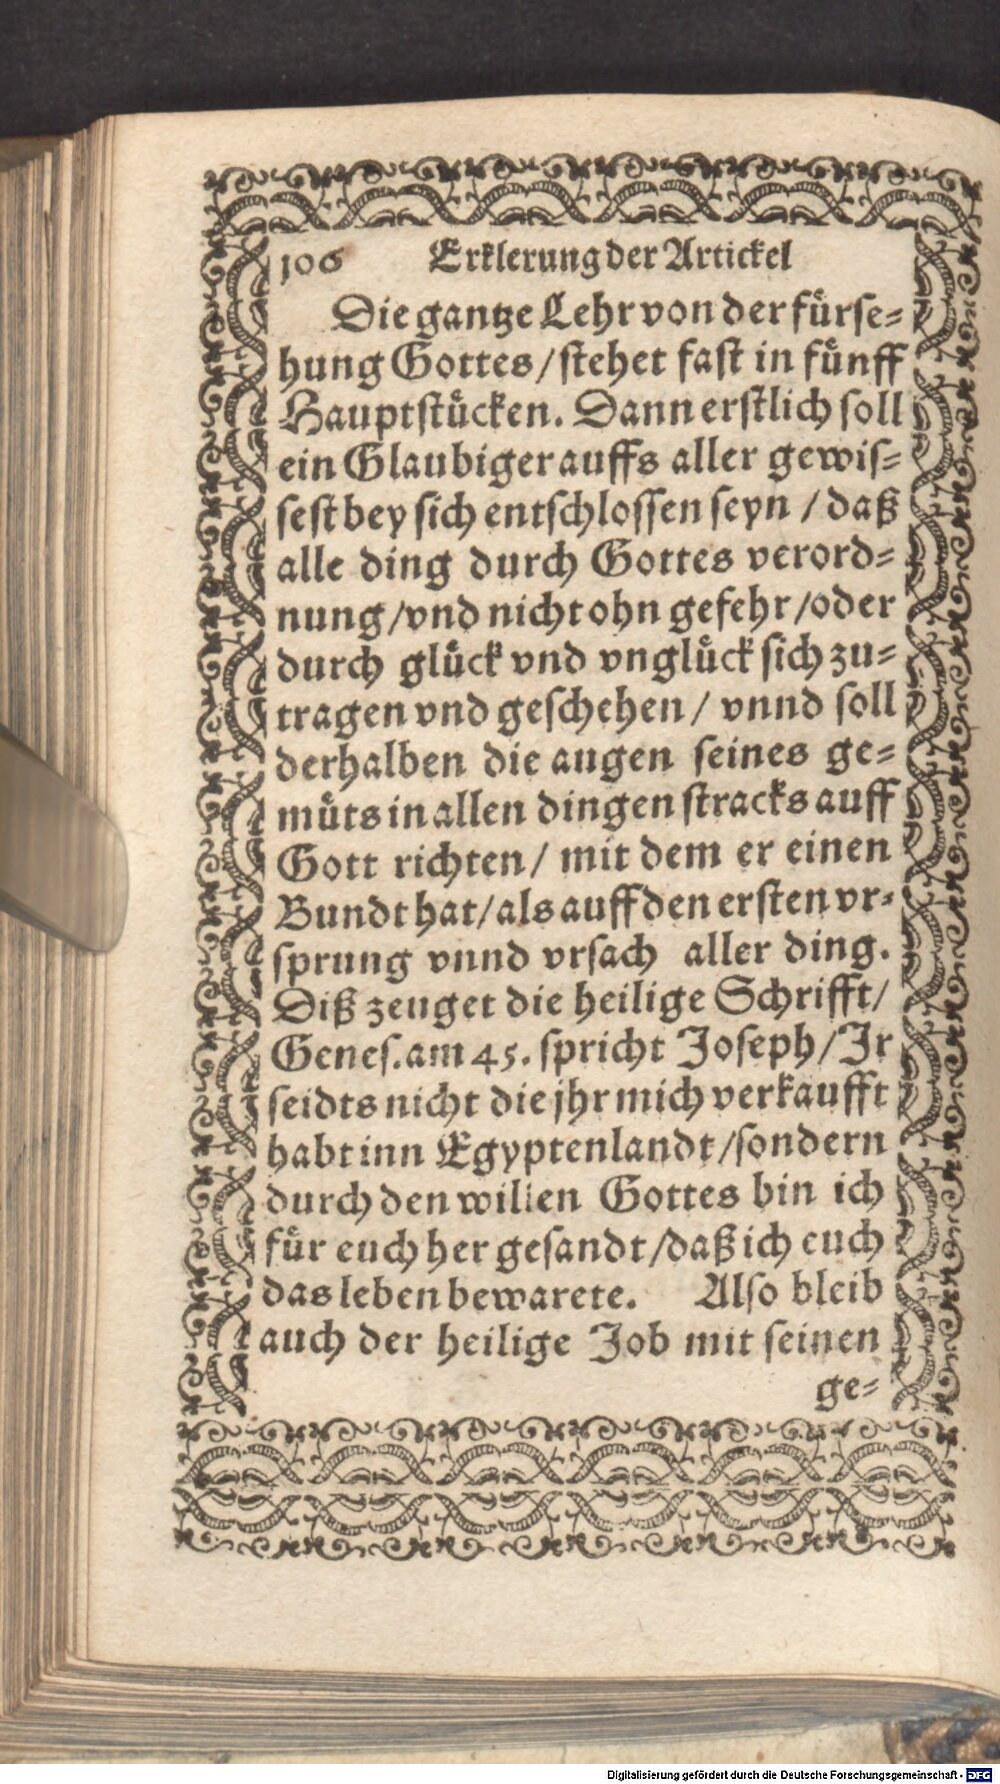 106 Erklerung der Artickel
Die gantze Lehr von der fürse=
hung Gottes / stehet fast in fünff
Hauptstücken. Dann erstlich soll
ein Glaubiger auffs aller gewis=
sest bey sich entschlossen seyn / daß
alle ding durch Gottes verord=
nung / vnd nicht ohn gefehr / oder
durch glück vnd vnglück sich zu=
tragen vnd geschehen / vnnd soll
derhalben die augen seines ge=
müts in allen dingen stracks auff
Gott richten / mit dem er einen
Bundt hat / als auff den ersten vr=
sprung vnnd vrsach aller ding.
Diß zeuget die heilige Schrifft /
Genes. am 45. spricht Joseph / Jr
seidts nicht die jhr mich verkaufft
habt inn Egyptenlandt / sondern
durch den willen Gottes bin ich
für euch her gesandt / daß ich euch
das leben bewarete. Also bleib
auch der heilige Job mit seinen
ge=
Digitalisierung gefördert durch die Deutsche Forschungsgemeinschaft - DFG